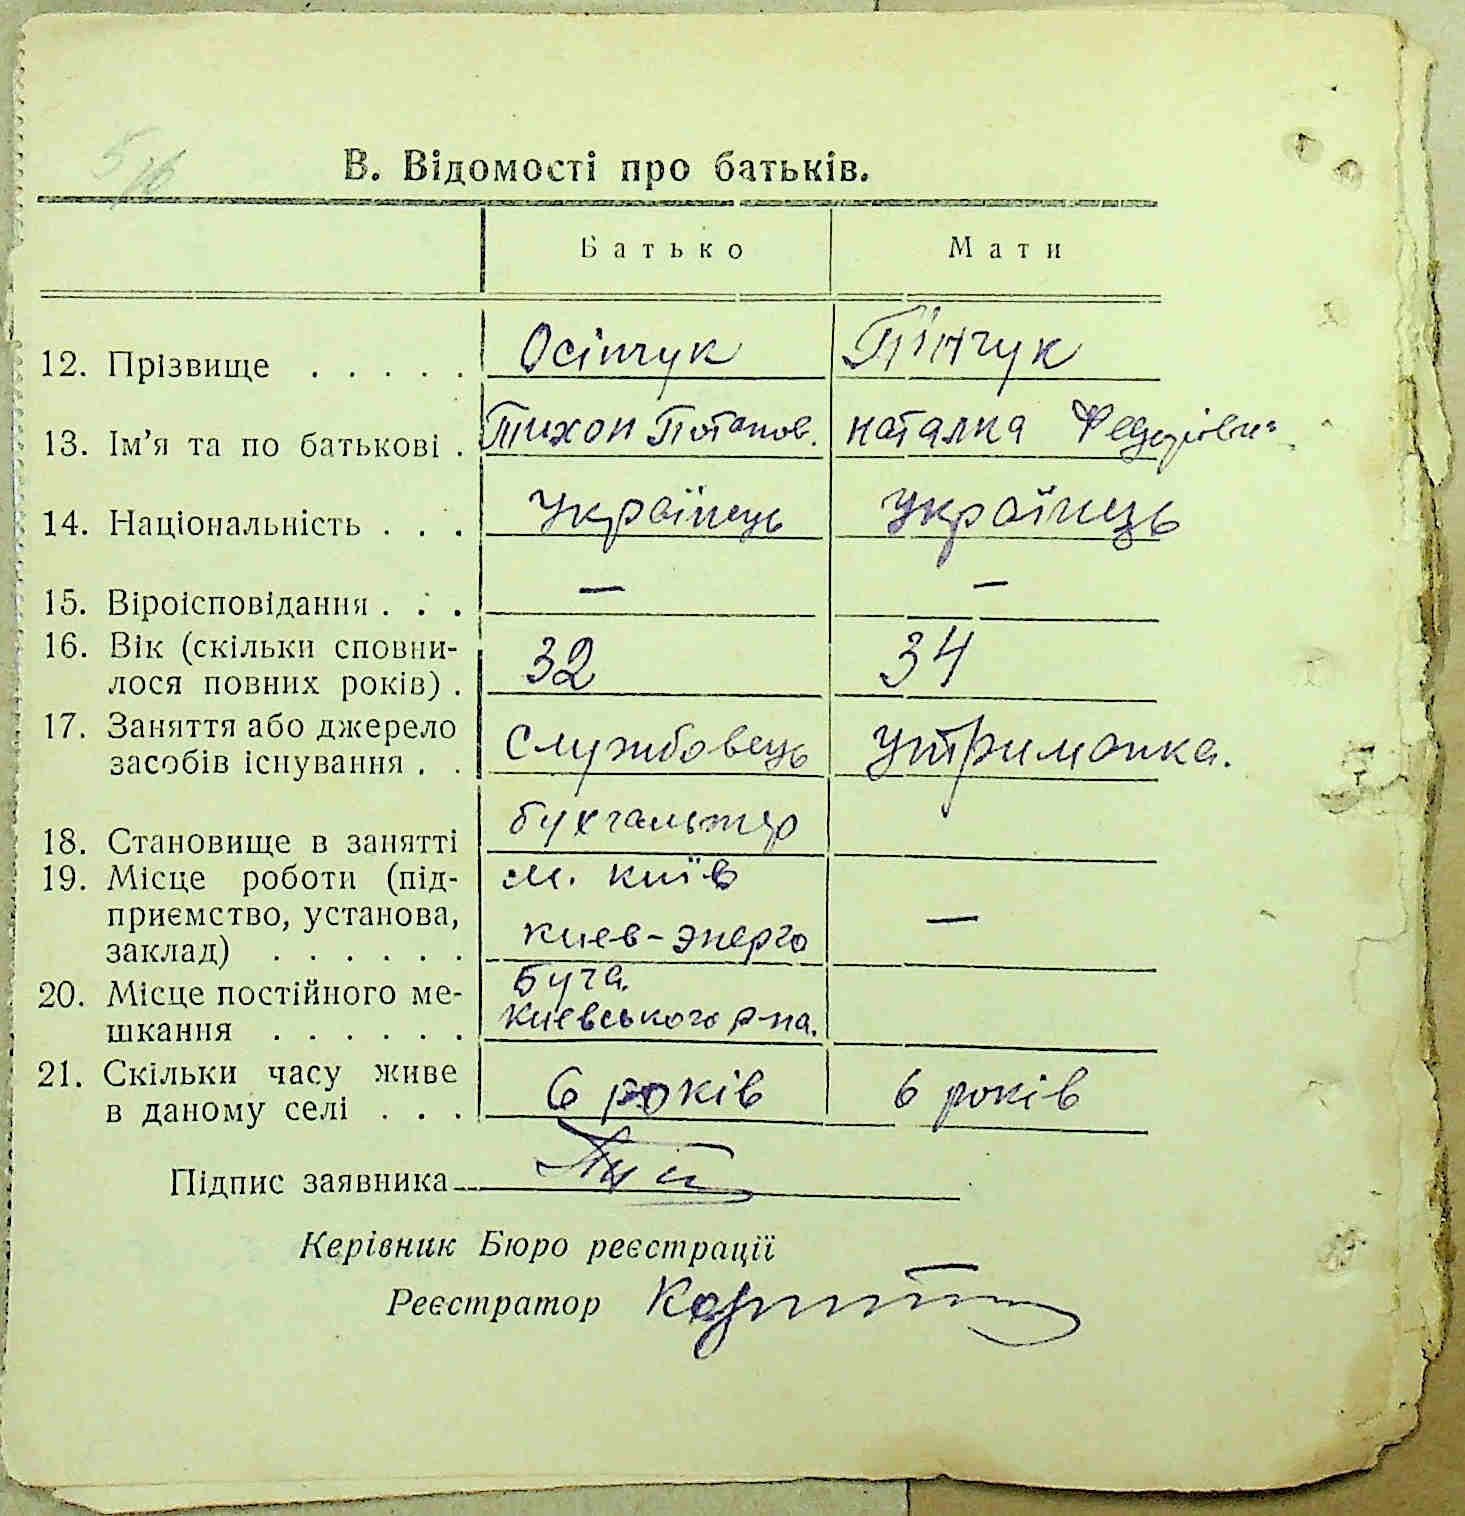 В. Відомості про батьків.
Батько Мати
12. Прізвище . . . . . Осіпчук Пінчук
13. Ім'я та по батькові . Тихон Потапов. Наталка Федорівн
14. Національність . . . Українець Українець
15. Віроісповідання . . . — —
16. Вік (скільки сповни-
лося повних років) . 32 34
17. Заняття або джерело
засобів існування . . Службовець Утриманка.
18. Становище в занятті бухгальтер
19. Місце роботи (під- м. Київ
приємство, установа,
заклад) . . . . . . Киев-энерго —
20. Місце постійного ме- Буча.
шкання . . . . . . Києвського р-на.
21. Скільки часу живе
в даному селі . . . 6 років 6 років
Підпис заявника
Керівник Бюро реєстрації
Реєстратор